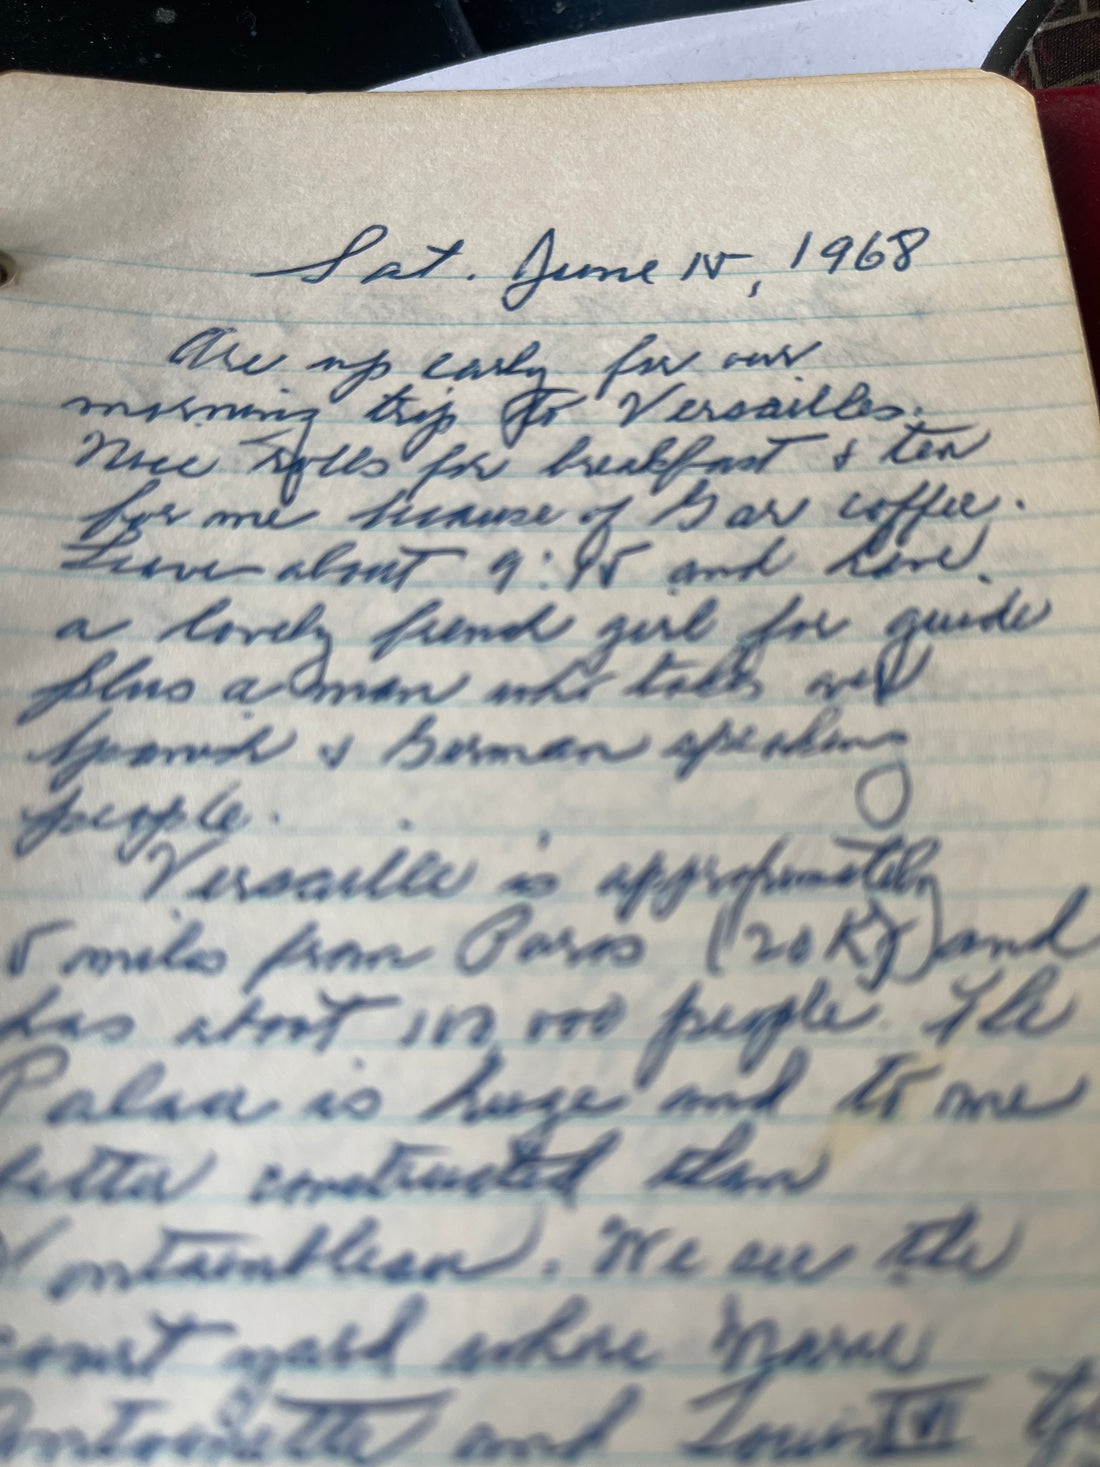 Sat. June 15, 1968
Are up early for our
morning trip to Versailles.
Nice rolls for breakfast & tea
for me because of coffee.
Leave about 9:45 and have
a lovely french girl for guide
plus a man who takes over
Spanish & German speaking
people.
Versaille is approximately
miles from Paris (20 K) and
has about 100,000 people. The
Palace is huge and to me
better constructed than
Fontainbleau. We see the
court yard where Marie
Antoinette and Louis